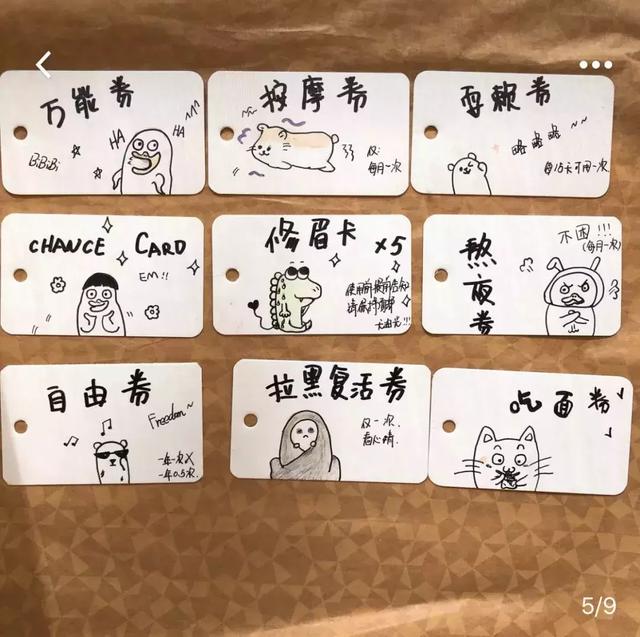 万能券
HA
HA
BiBiBi
按摩券
仅:
每月一次
耍赖券
略略略~~
CHANCE CARD
EM!!
修眉卡 x5
!!!
熬夜券
不困!!!
(每月一次)
自由券
Freedom~
一年一次X
一年0.5次.
拉黑复活券
仅一次.
看心情.
吃面券
5/9